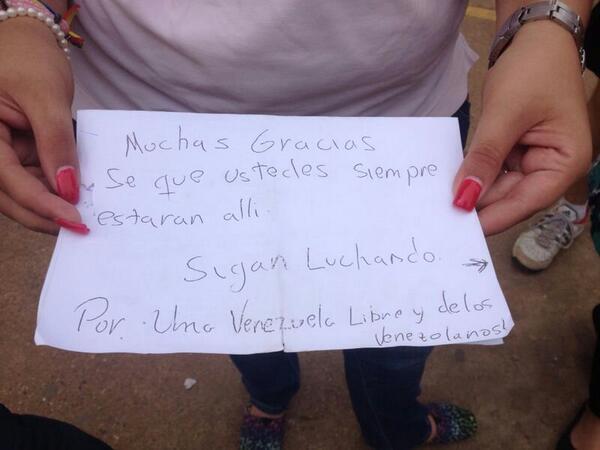 Muchas Gracias
Se que ustedes siempre
estaran alli.
Sigan Luchando. →
Por. Una Venezuela Libre y de los
Venezolanos!